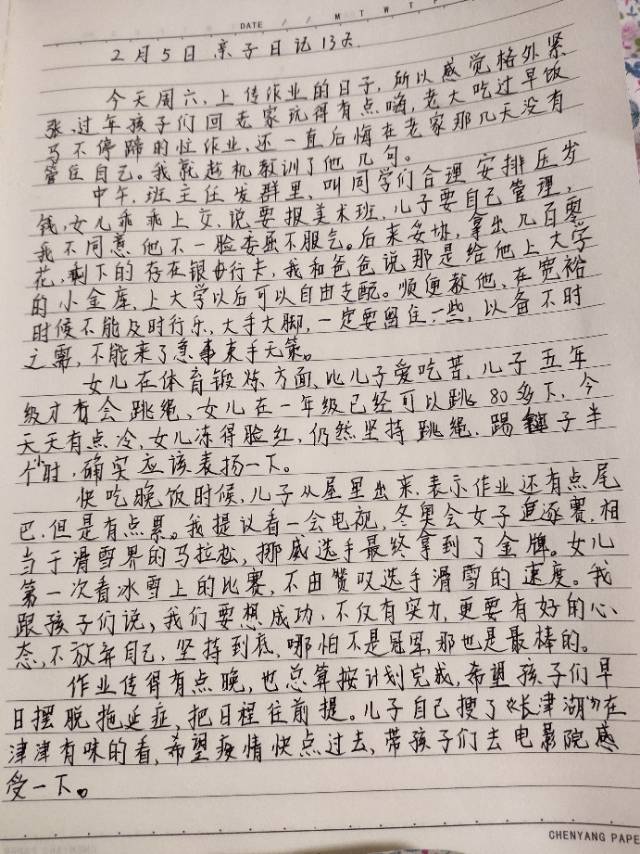 DATE / / M T W T F
2月5日 亲子日记13天
今天周六,上传作业的日子,所以感觉格外紧
张,过年孩子们回老家玩得有点嗨,老大吃过早饭
马不停蹄的忙作业,还一直后悔在老家那几天没有
管住自己。我就趁机教训了他几句。
中午,班主任发群里,叫同学们合理安排压岁
钱,女儿乖乖上交,说要报美术班,儿子要自己管理,
我不同意,他不一脸委屈不服气。后来妥协,拿出几百零
花,剩下的存在银行卡,我和爸爸说那是给他上大学
的小金库,上大学以后可以自由支配。顺便教他,在宽裕
时候不能及时行乐,大手大脚,一定要留住一些,以备不时
之需,不能来了急事束手无策。
女儿在体育锻炼方面,比儿子爱吃苦,儿子五年
级才有会跳绳,女儿在一年级已经可以跳80多下,今
天天有点冷,女儿冻得脸红,仍然坚持跳绳,踢毽子半
个小时,确实应该表扬一下。
快吃晚饭时候,儿子从屋里出来,表示作业还有点尾
巴,但是有点累。我提议看一会电视,冬奥会女子追逐赛,相
当于滑雪界的马拉松,挪威选手最终拿到了金牌。女儿
第一次看冰雪上的比赛,不由赞叹选手滑雪的速度。我
跟孩子们说,我们要想成功,不仅有实力,更要有好的心
态,不放弃自己,坚持到底,哪怕不是冠军,那也是最棒的。
作业传得有点晚,也总算按计划完成,希望孩子们早
日摆脱拖延症,把日程往前提。儿子自己搜了《长津湖》在
津津有味的看,希望疫情快点过去,带孩子们去电影院感
受一下。
CHENYANG PAPE